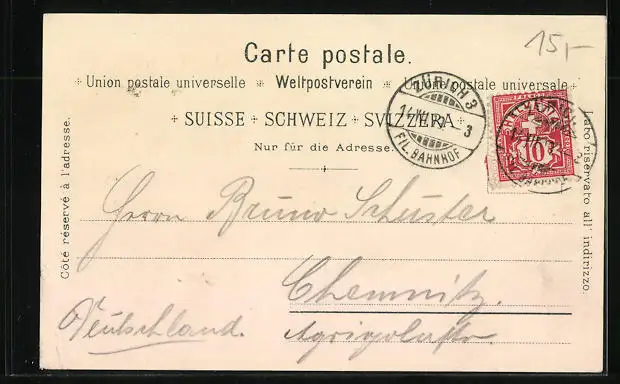 15,-
Carte postale.
Union postale universelle * Weltpostverein * Unione postale universale
* SUISSE * SCHWEIZ * SVIZZERA *
Nur für die Adresse.
ZÜRICH 3
3
FIL. BAHNHOF
10
Côté réservé à l'adresse.
Lato riservato all' indirizzo.
Herrn Bruno Schuster
Chemnitz.
Deutschland.